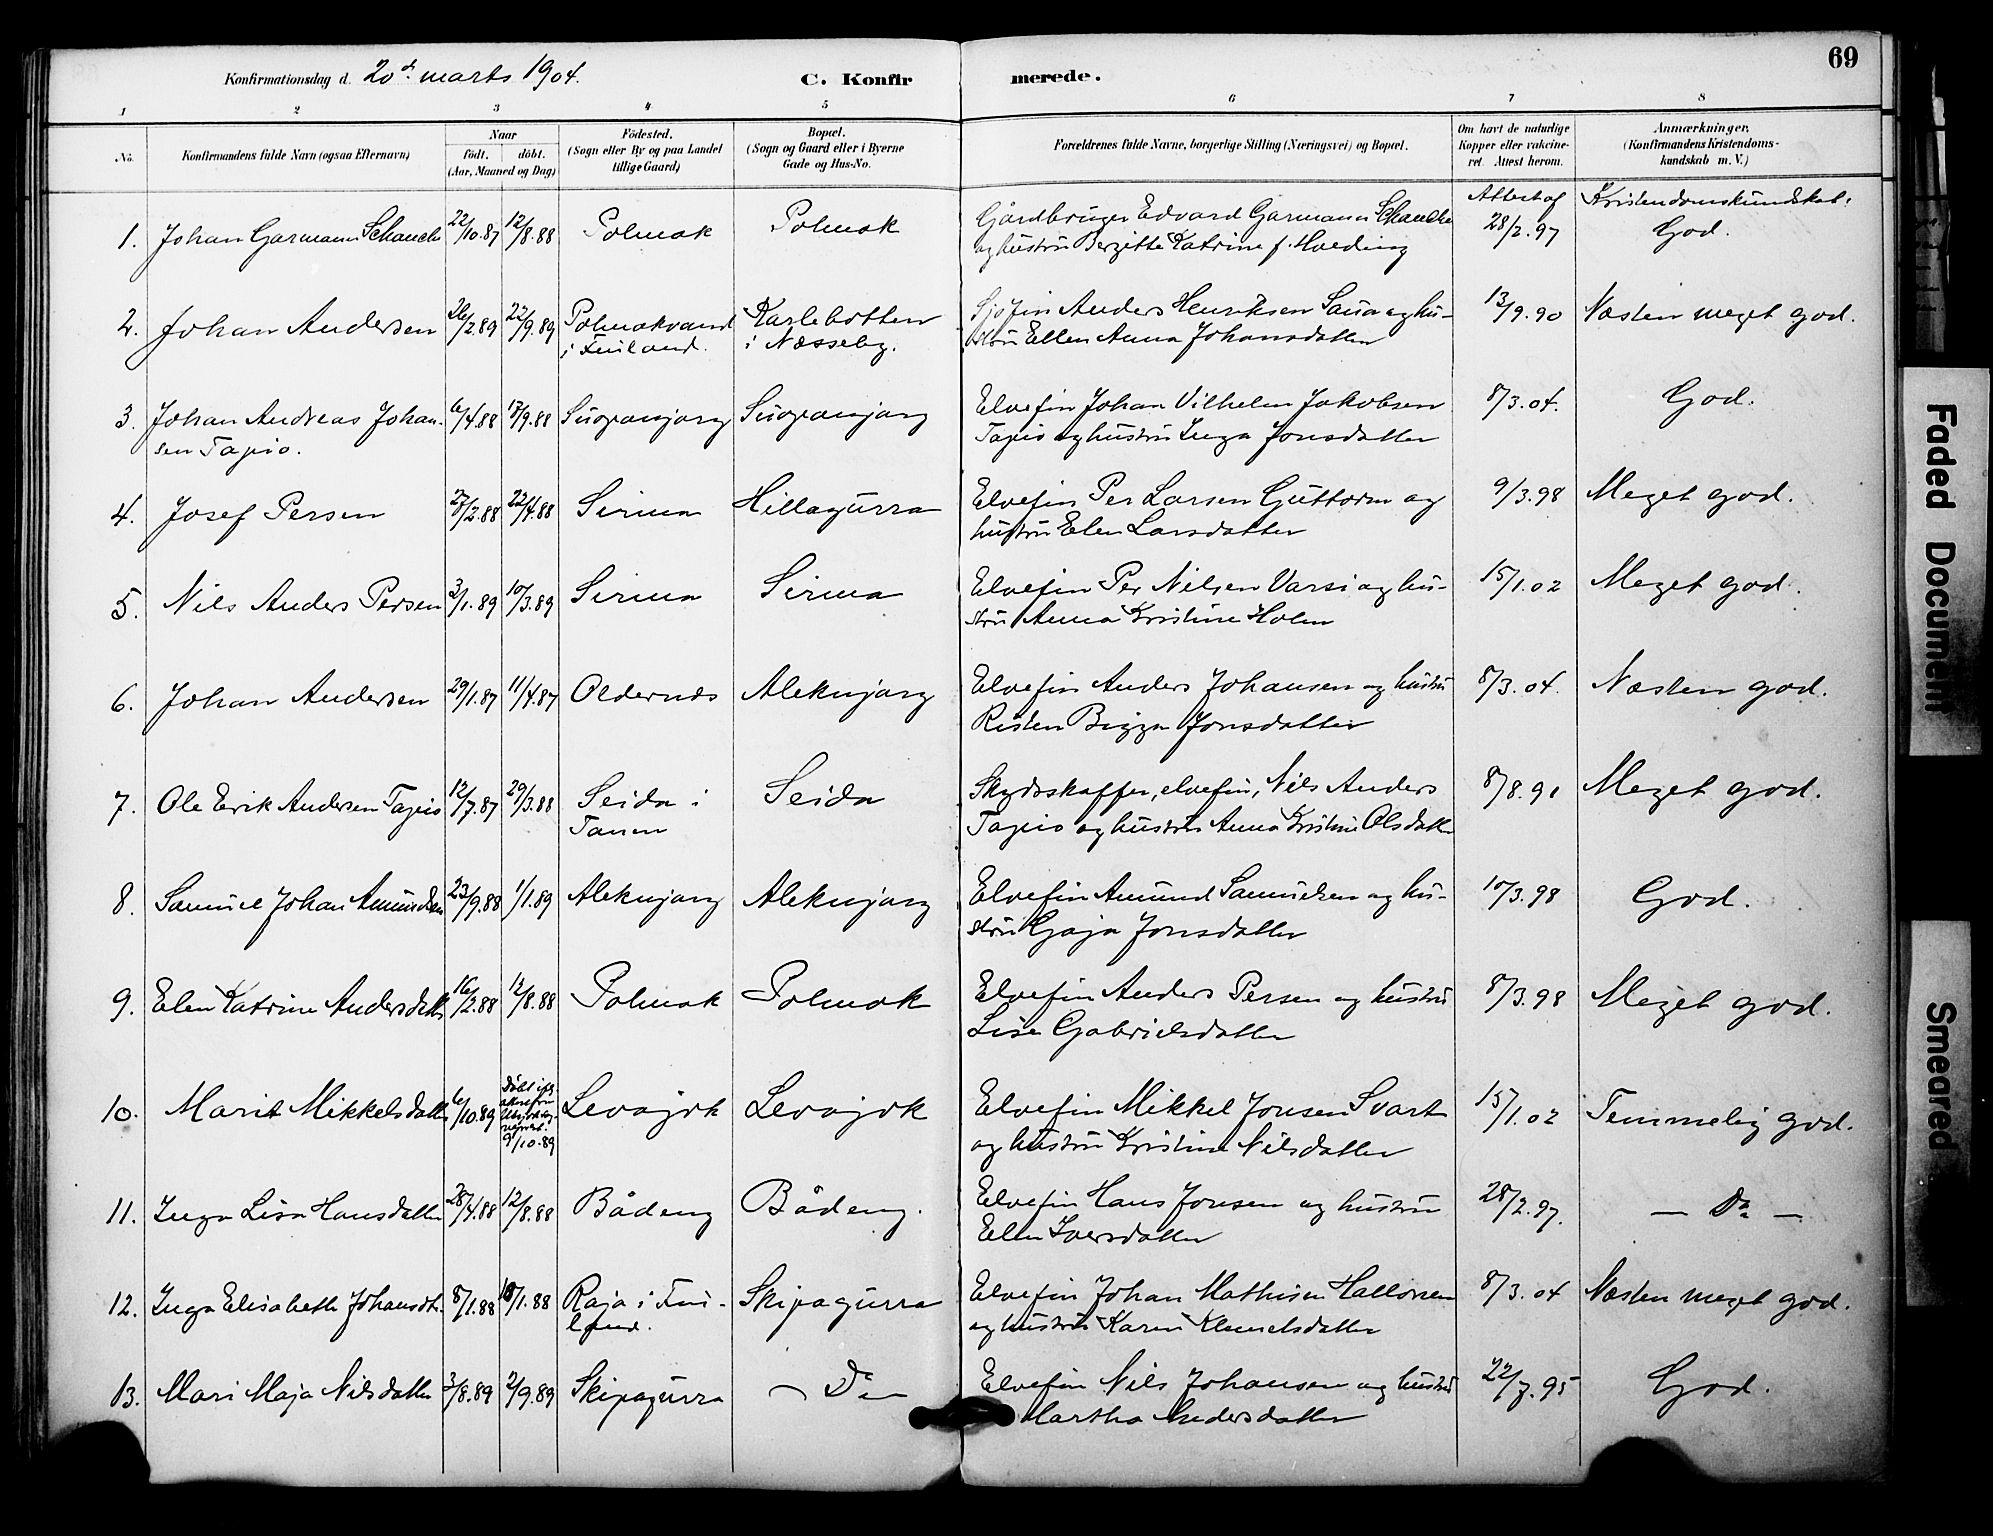 69
Konfirmationsdag d. 20d marts 1904.
C. Konfirmerede.
1 2 3 4 5 6 7 8
No.
Konfirmandens fulde Navn (ogsaa Efternavn)
Naar
födt. döbt.
(Aar, Maaned og Dag)
Födested.
(Sogn eller By og paa Landet
tillige Gaard)
Bopæl.
(Sogn og Gaard eller i Byerne
Gade og Hus-No.
Forældrenes fulde Navne, borgerlige Stilling (Næringsvei) og Bopæl.
Om havt de naturlige
Kopper eller vakcine-
ret. Attest herom.
Anmærkninger.
(Konfirmandens Kristendoms-
kundskab m. V.)
Attest af Kristendomskundskab:
1. Johan Garmann Schanche 22/10.87 12/8.88 Polmak Polmak Gårdbruger Edvard Garmann Schanche 28/2.97 God.
og hustru Bergitte Katrine f. Holding
2. Johan Andersen 26/2.89 22/9.89 Polmakvand Karlebotten Sjøfin Anders Henriksen og hu- 13/9.90 Næsten meget god.
i Finland. i Næsseby. stru Ellen Anna Johansdatter
3. Johan Andreas Johan- 6/4.88 17/9.88 Suopanjarg Suopanjarg Elvefin Johan Vilhelm Jakobsen 8/3.04. God.
sen Tapio. Tapio og hustru Inga Jonsdatter
4. Josef Persen 27/2.88 22/4.88 Sirma Hillagurra Elvefin Per Larsen Guttorm og 9/3.98 Meget god.
hustru Elen Larsdatter
5. Nils Anders Persen 3/1.89 10/3.89 Sirma Sirma Elvefin Per Nilsen Varsi og hu- 15/1.02 Meget god.
stru Anna Kristine Holm
6. Johan Andersen 29/1.87 11/4.87 Oldernæs Aleknjarg Elvefin Anders Johansen og hustru 8/3.04. Næsten god.
Risten Bigga Jonsdatter
7. Ole Erik Andersen Tapio 12/7.87 29/3.88 Seida i Seida Skydsskaffer, elvefin, Nils Anders 8/8.91 Meget god.
Tanen Tapio og hustru Anna Kristine Olsdatter
8. Samuel Johan Amundsen 23/9.88 1/1.89 Aleknjarg Aleknjarg Elvefin Amund Samuelsen og hu- 10/3.98 God.
stru Gaja Jonsdatter
9. Elen Katrine Andersdatter 16/2.88 12/8.88 Polmak Polmak Elvefin Anders Persen og hustru 8/3.98 Meget god.
Lisa Gabrielsdatter
10. Marit Mikkelsdatter 6/10.89 Døbt 9/10.89 Levajok Levajok Elvefin Mikkel Jonsen Svart 15/1.02 Temmelig god.
og hustru Kristine Nilsdatter
11. Inga Lisa Hansdatter 28/4.88 12/8.88 Bådeng Bådeng. Elvefin Hans Jonsen og hustru 28/2.97. — Do —
Ellen Iversdatter
12. Inga Elisabeth Johansdt. 8/1.88 18/1.88 Raja i Fin- Skipagurra Elvefin Johan Mathisen Halvorsen 8/3.04 Næsten meget god.
land. og hustru Karen Klemetsdatter
13. Mari Maja Nilsdatter 3/8.89 2/9.89 Skipagurra — Do — Elvefin Nils Johansen og hustru 22/7.95 God.
Martha Andersdatter
Faded Document
Smeared